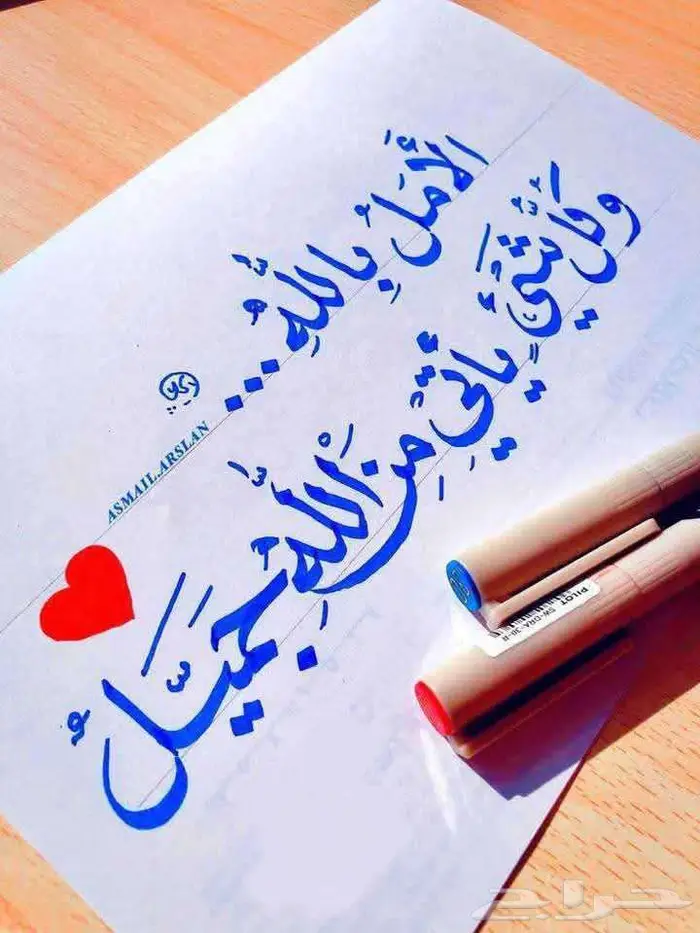 الأَمَلُ بِاللهِ...
وَكُلُّ شَيْءٍ يَأْتِي مِنَ اللهِ جَمِيلٌ
ASMAIL.ARSLAN
PILOT
SW-DRA-30-R
حراج